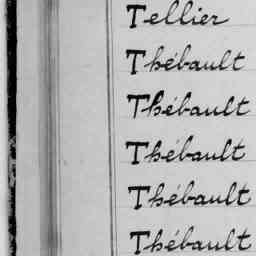 Tellier
Thébault
Thébault
Thébault
Thébault
Thébault